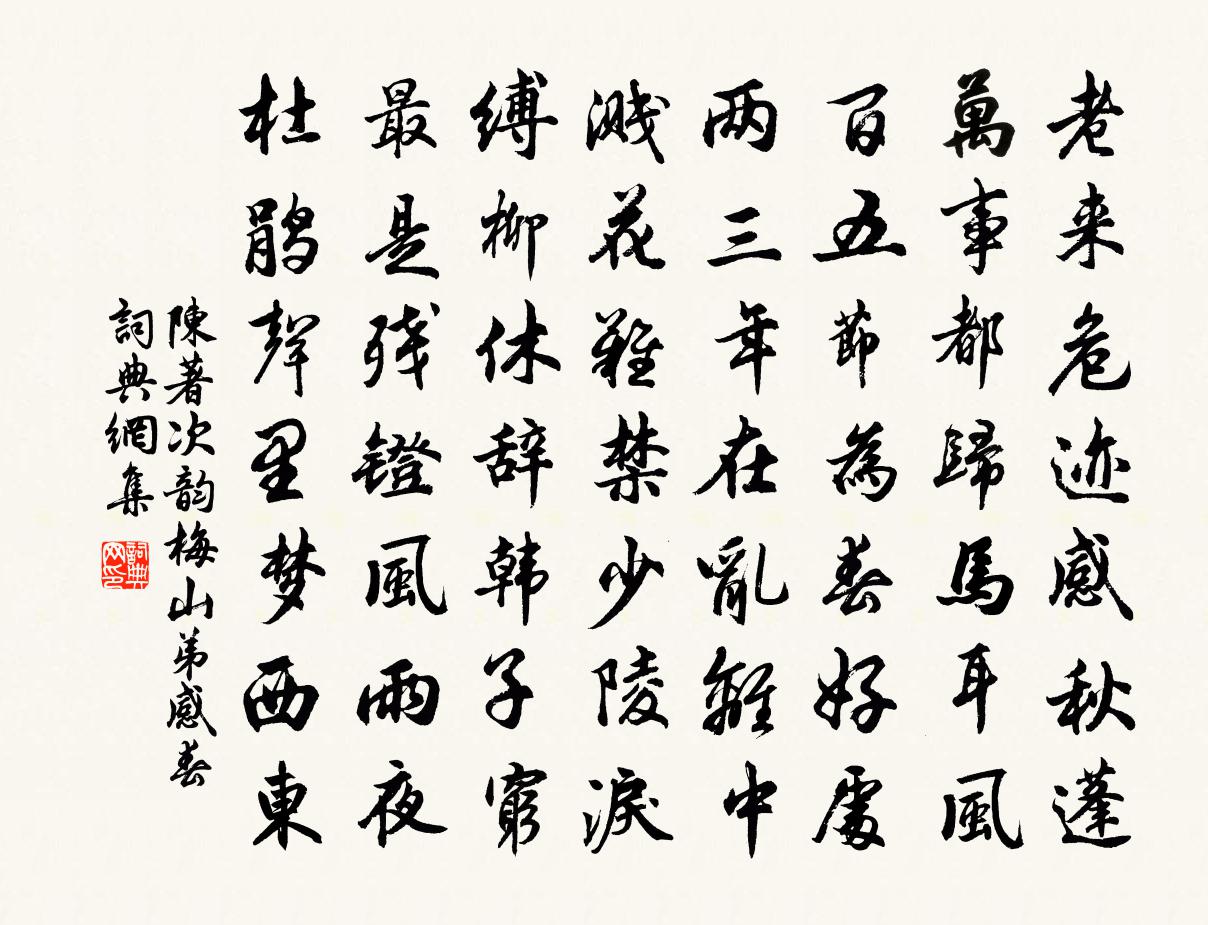 老来危迹感秋蓬
萬事都歸馬耳風
百五節為春好處
两三年在亂離中
溅花難禁少陵淚
縛柳休辞韩子窮
最是残鐙風雨夜
杜鹃聲里梦西東
陳著次韵梅山弟感春
詞典網集
詞典网印